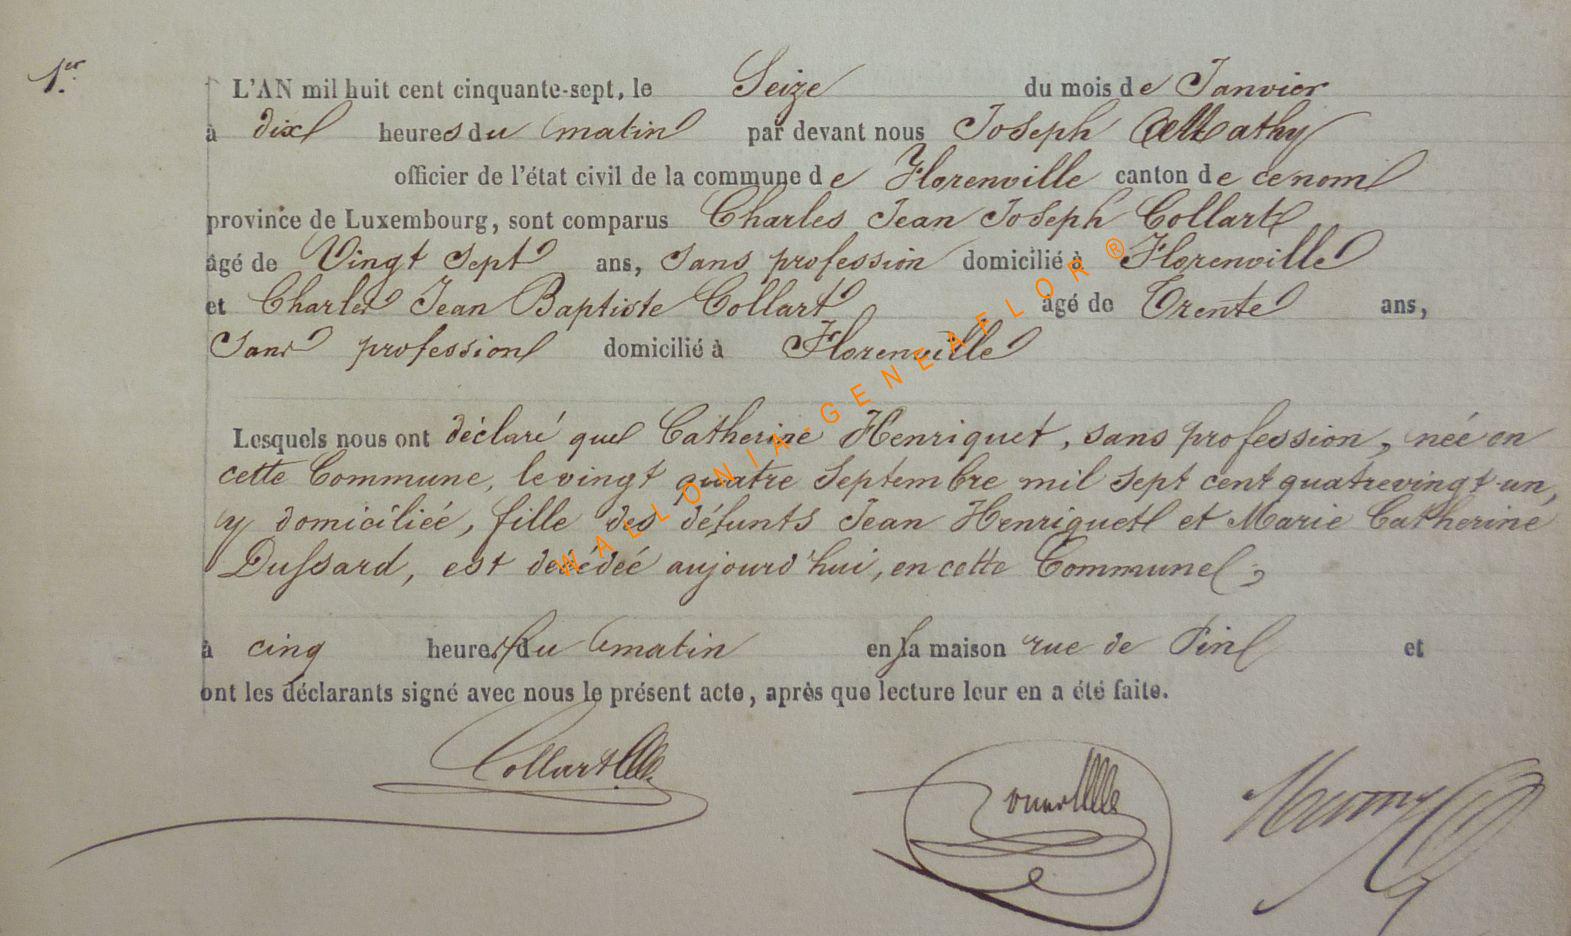 1.er
L'AN mil huit cent cinquante-sept, le Seize du mois de Janvier
à dix heures du matin par devant nous Joseph Mathy
officier de l'état civil de la commune de Florenville canton de ce nom
province de Luxembourg, sont comparus Charles Jean Joseph Collart
âgé de Vingt Sept ans, Sans profession domicilié à Florenville
et Charles Jean Baptiste Collart âgé de Trente ans,
Sans profession domicilié à Florenville
Lesquels nous ont déclaré que Catherine Henriquet, sans profession, née en
cette Commune, le vingt quatre Septembre mil sept cent quatrevingt un,
y domiciliée, fille des défunts Jean Henriquet et Marie Catherine
Dussard, est décédée aujourd'hui, en cette Commune,
à cinq heures du matin en sa maison rue de Pin et
ont les déclarants signé avec nous le présent acte, après que lecture leur en a été faite.
Collart
WALLONIA-GENEAFLOR®